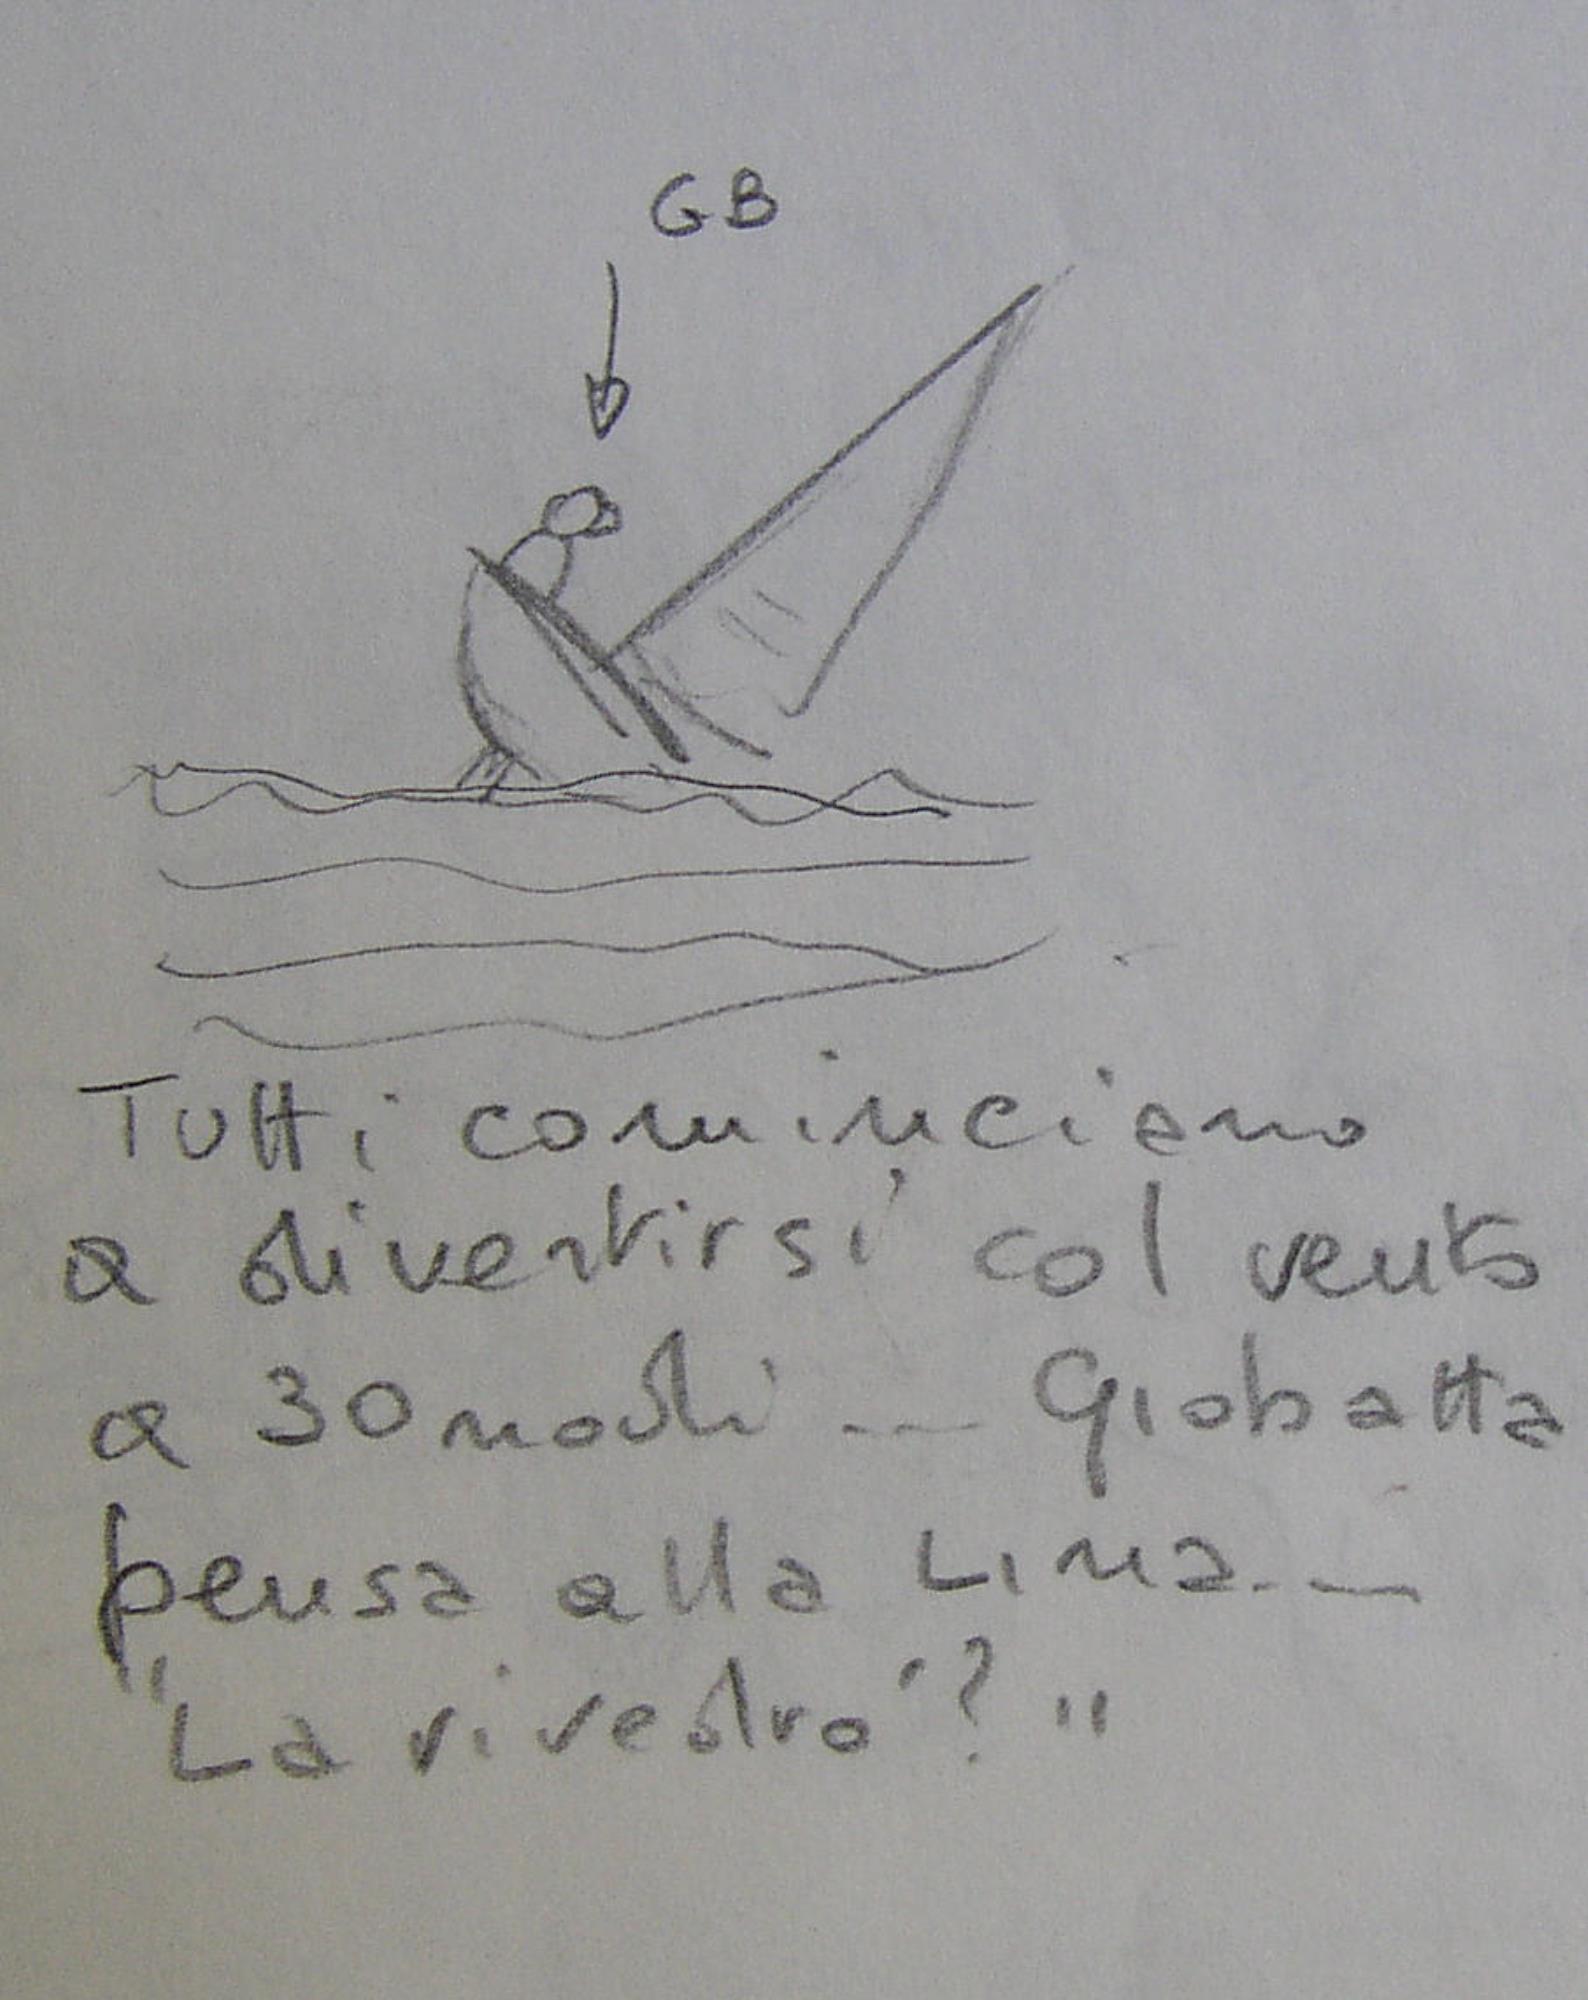 GB
Tutti cominciano
a divertirsi col vento
a 30 nodi --- Giobatta
pensa alla Lina ---
"La rivedrò"? "